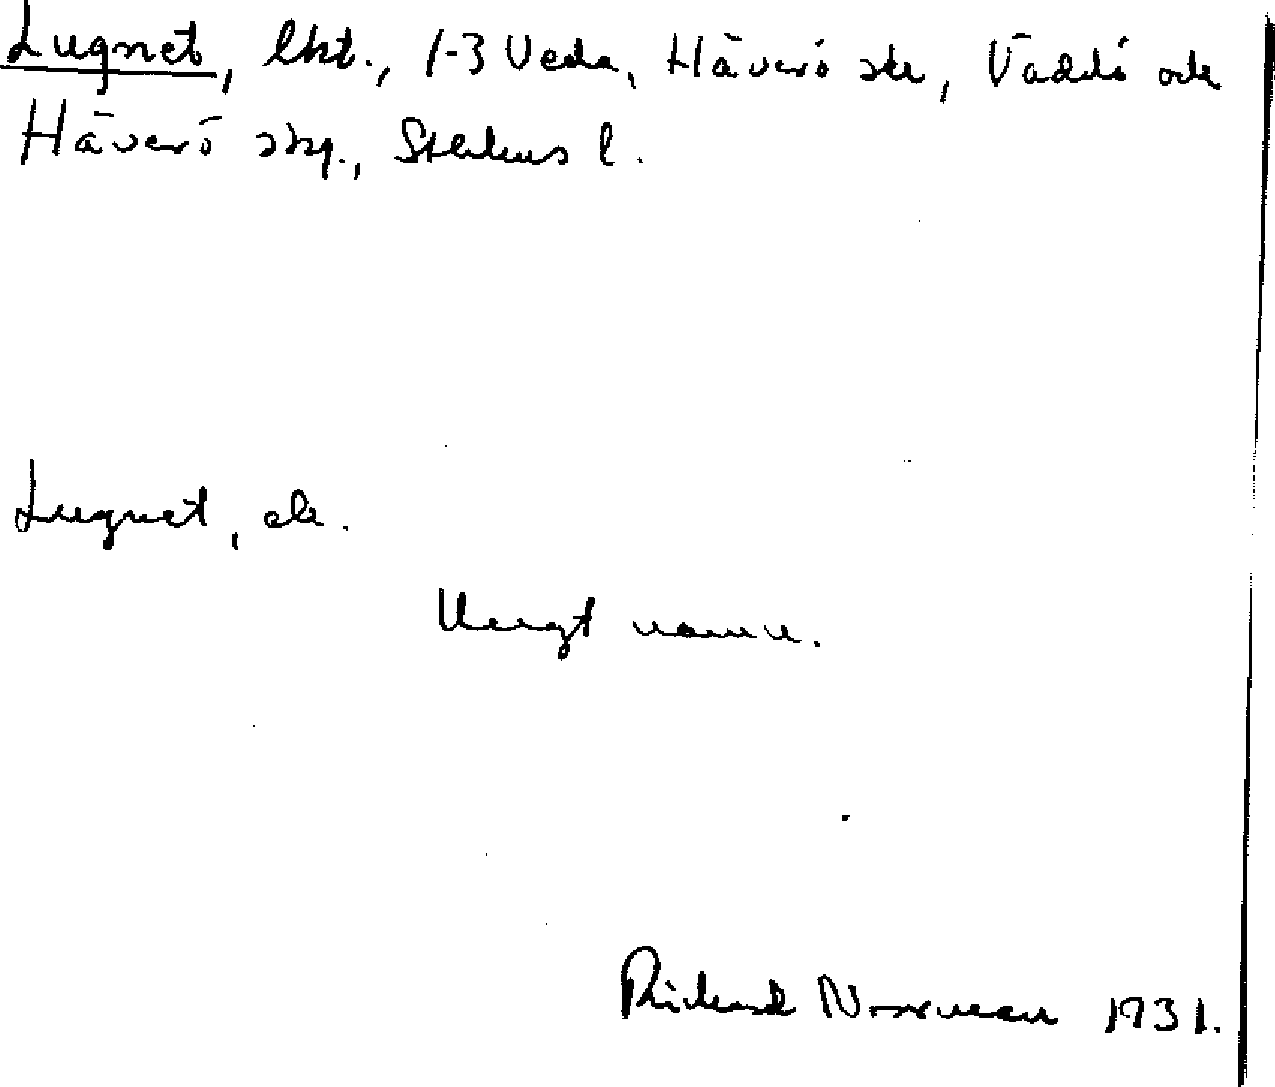 Lugnet, lht., 1-3 Veda, Häverö skn, Väddö och
Häverö skg., Sthlms l.
Lugnet, ck.
Ungt namn.
Rickard Norrman 1931.